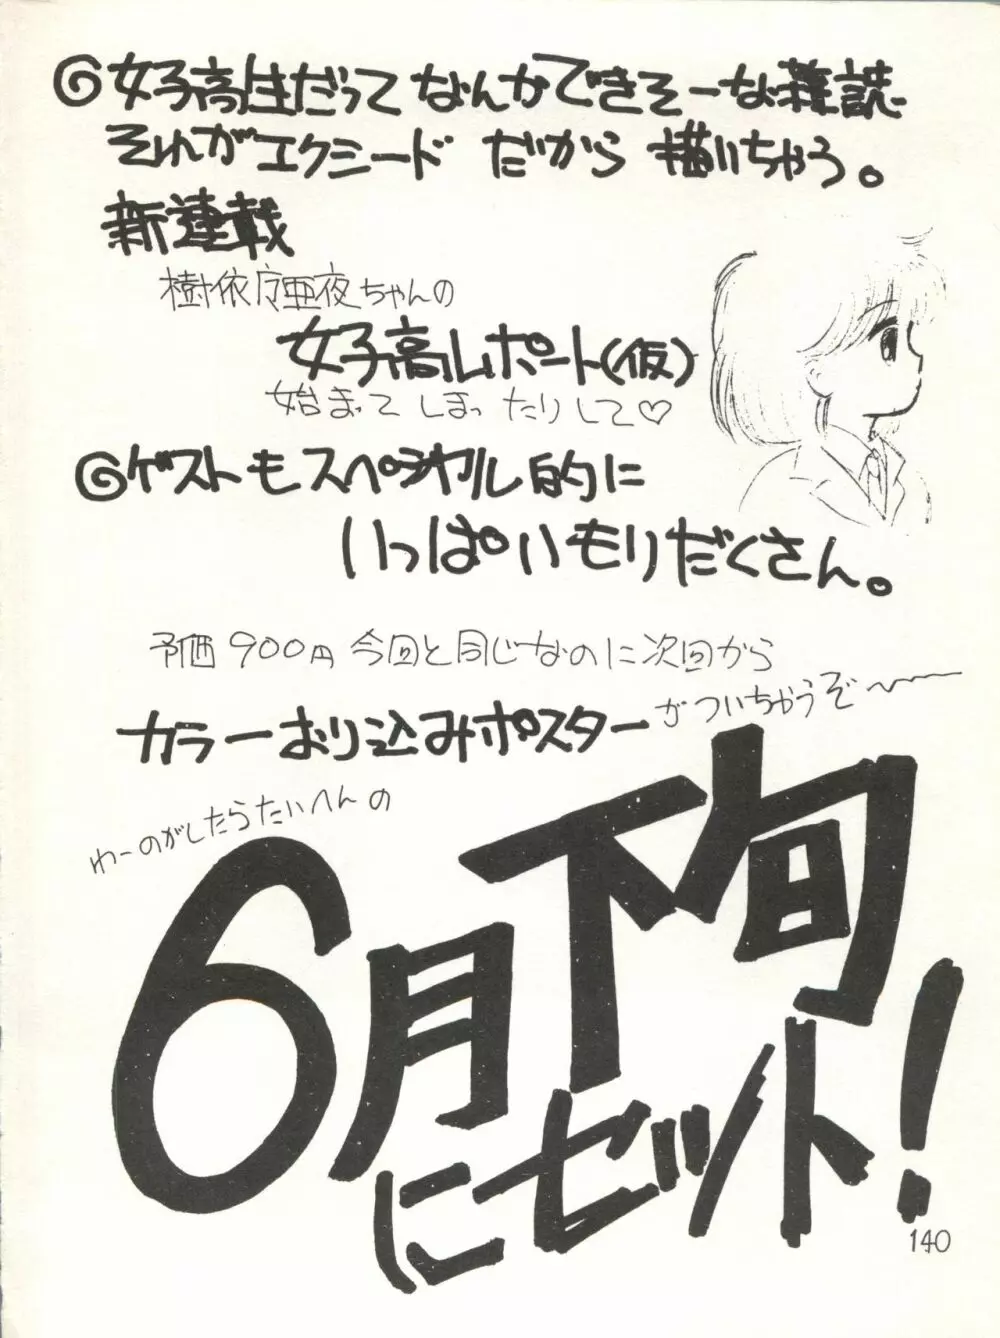 ◎女子高生だってなんかできそーな雑誌
それがエクシード だから 描いちゃう。
新連載
樹依亜夜ちゃんの
女子高レポート(仮)
始まって しまったりして♡
◎ゲストもスペシャル的に
いっぱいもりだくさん。
予価900円 今回と同じなのに次回から
カラーおり込みポスターがついちゃうぞ〜
みーのがしたらたいへんの
6月下旬
にセット!
140